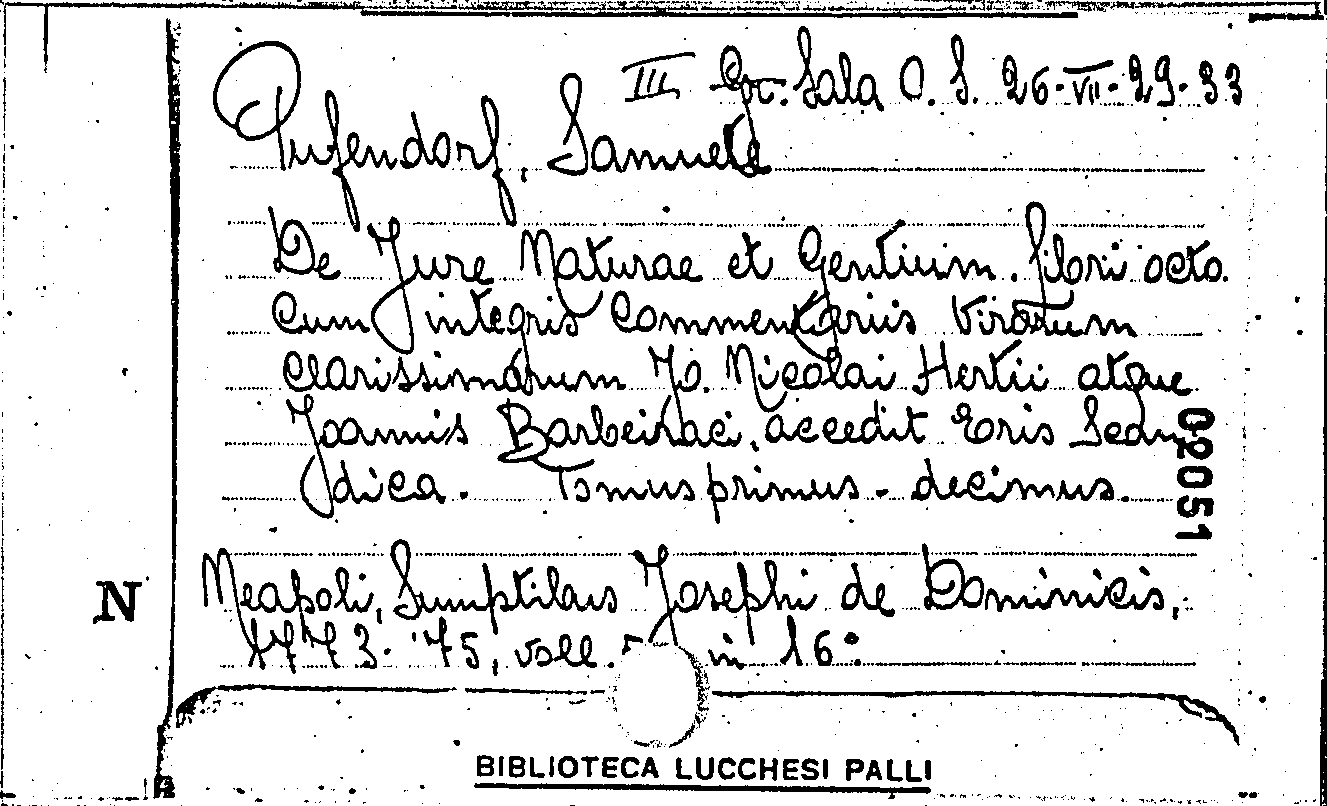 III Gr. Sala O. S. 26-VII-29-33
Pufendorf, Samuele
De Jure Naturae et Gentium. libri octo.
cum integris commentariis virorum
clarissimorum Jo. Nicolai Hertii atque
Joannis Barbeiraci, accedit Eris Scan
dica. Tomus primus - decimus.
Neapoli, Sumptibus Josephi de Dominicis,
1773-'75, voll. in 16°
02051
N
BIBLIOTECA LUCCHESI PALLI